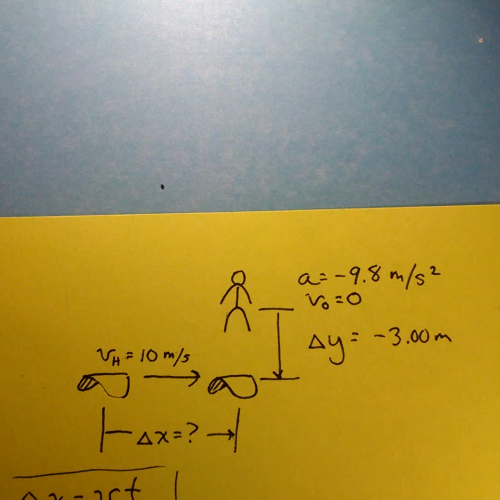 a = -9.8 m/s²
v₀ = 0
Δy = -3.00 m
v_H = 10 m/s
Δx = ?
Δx = vt